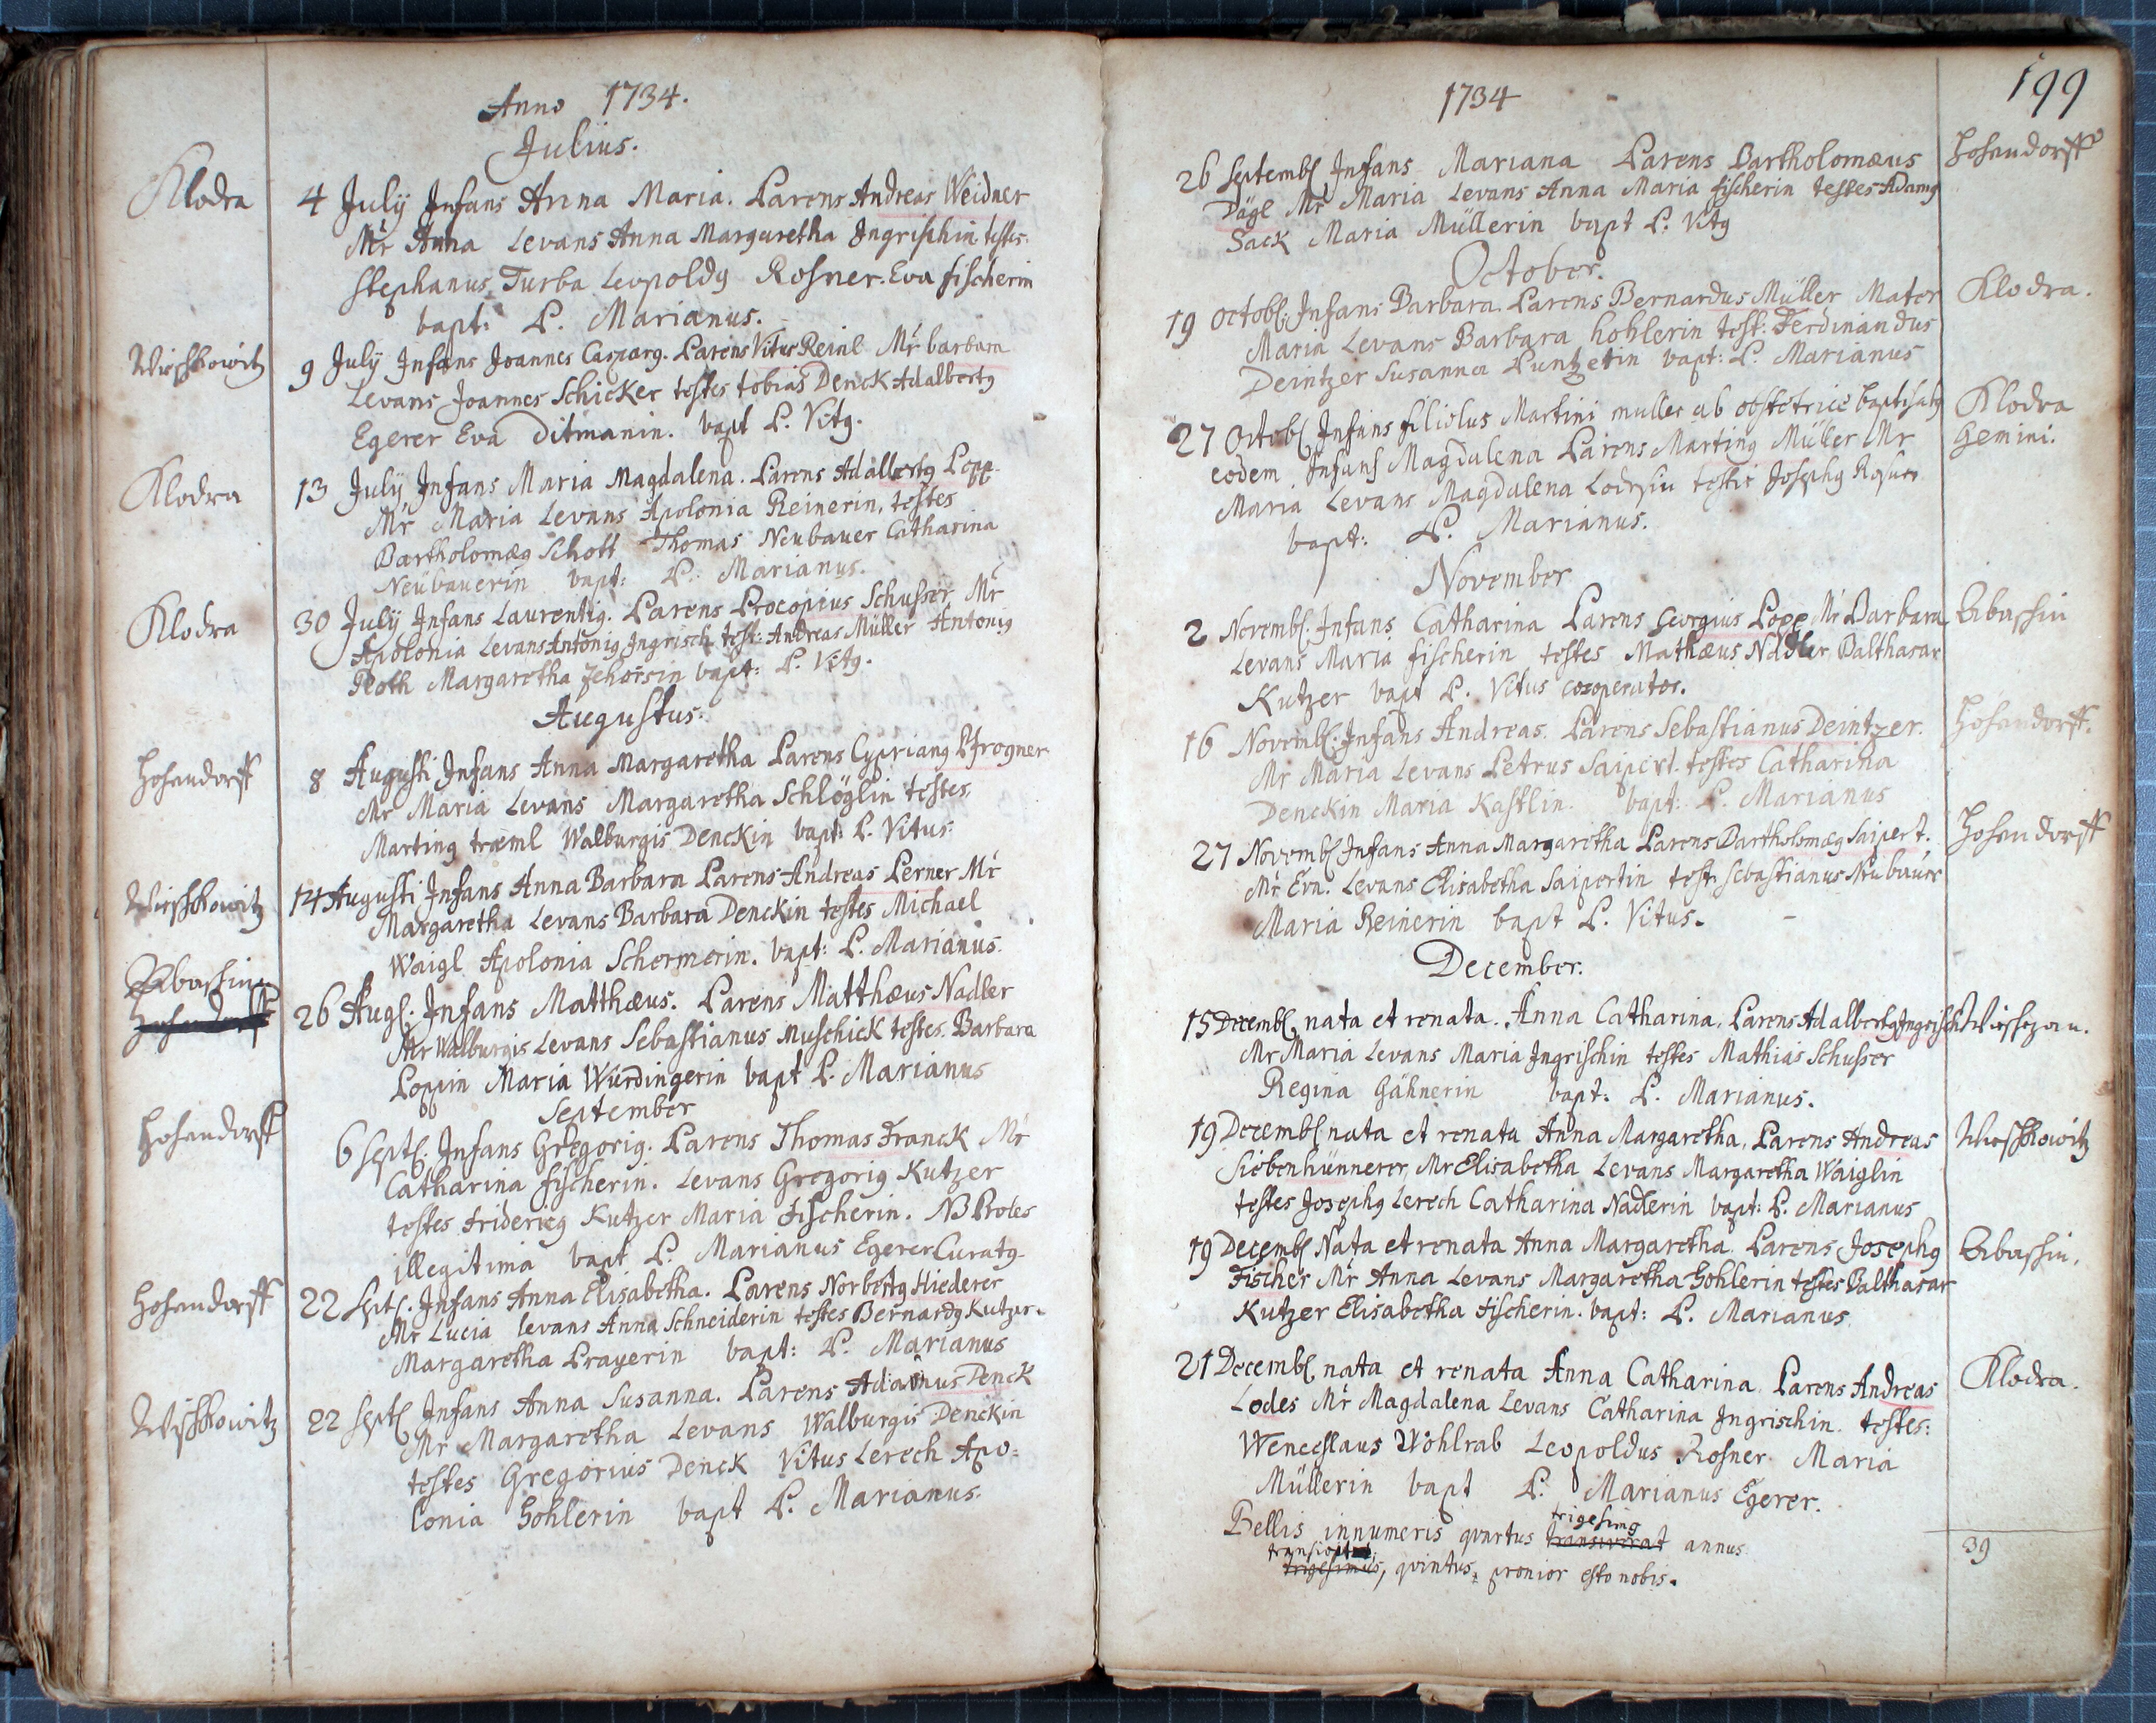 Anno 1734.
Julius.
Klodra
4 July Infans Anna Maria. Parens Andreas Weidner
Mr Anna Levans Anna Margaretha Ingrischin testes.
Stephanus Turba Leopoldg Rosner. Eva fischerin
bapt: P. Marianus.
Wischkowitz
9 July Infans Joannes Casparg. Parens Vitus Reinl Mr barbara
Levans Joannes Schicker testes tobias Denck Adalbertg
Egerer Eva Ditmanin. bapt P. Vitg.
Klodra
13 July Infans Maria Magdalena. Parens Adalbertg Popp.
Mr Maria Levans Apolonia Reinerin, testes
Bartholomæg Schott Thomas Neubauer Catharina
Neübauerin bapt: P. Marianus.
Klodra
30 July Infans Laurentig. Parens Procopius Schusser Mr
Apolonia Levans Antonig Ingrisch test: Andreas Müller Antonig
Roth Margaretha bapt: P. Vitg.
Augustus.
Hohendorff
8 Augusti Infans Anna Margaretha Parens Cypriang Pfrogner
Mr Maria Levans Margaretha Schlöglin testes
Marting træml Walburgis Denckin bapt: P. Vitus.
Wischkowitz
14 Augusti Infans Anna Barbara Parens Andreas Lerner Mr
Margaretha Levans Barbara Denckin testes Michael
Waigl Apolonia Schermerin. bapt: P. Marianus.
Abaschin
Hohendorff
26 Aug. Infans Matthæus. Parens Matthæus Nadler
Mr Walburgis Levans Sebastianus Muschick testes. Barbara
Poppin Maria Würdingerin bapt P. Marianus
September
Hohendorff
6 Sept. Infans Gregorig. Parens Thomas Franck Mr
Catharina fischerin. Levans Gregorig Kutzer
testes fridericg Kutzer Maria fischerin. NB Proles
illegitima bapt P. Marianus Egerer Curatg
Hohendorff
22 Sept. Infans Anna Elisabetha. Parens Norbertg Hiederer
Mr Lucia levans Anna Schneiderin testes Bernardg Kutzer.
Margaretha Prayerin bapt: P. Marianus
Wischkowitz
22 Sept Infans Anna Susanna. Parens Adamus Denck
Mr Margaretha Levans Walburgis Denckin
testes Gregorius Denck Vitus Lerech Apo:
lonia Gohlerin bapt P. Marianus.
1734
199
26 Septemb Infans Mariana Parens Bartholomæus
Hohendorff
Dägl Mr Maria Levans Anna Maria fischerin testes Adamg
Sack Maria Müllerin bapt P. Vitg
October.
19 Octob. Infans Barbara. Parens Bernardus Müller Mater
Klodra.
Maria Levans Barbara hohlerin test: Ferdinandus
Deintzer Susanna Puntzetin bapt: P. Marianus
27 Octob Infans filiolus Martini muller ab obstetrice baptisatg
Klodra
eodem Infans Magdalena Parens Marting Müller Mr
Gemini.
Maria Levans Magdalena Josephg Rosner
bapt: P. Marianus.
November
2 Novemb. Infans Catharina Parens Georgius Popp Mr Barbara
Abaschin
Levans Maria fischerin testes Mathæus Nadler Balthasar
Kutzer bapt P. Vitus cooperator.
16 Novemb. Infans Andreas. Parens Sebastianus Deintzer.
Hohendorff.
Mr Maria Levans Petrus Saipert. testes Catharina
Denckin Maria Kastlin. bapt: P. Marianus
27 Novemb Infans Anna Margaretha Parens Bartholomæg Saipert.
Hohendorff
Mr Eva. Levans Elisabetha Saipertin test. Sebastianus Neubauer
Maria Reinerin bapt P. Vitus.
December.
15 Decemb. nata et renata. Anna Catharina. Parens Adalbertg Ingrisch
Mr Maria Levans Maria Ingrischin testes Mathias Schusser
Regina Gähnerin bapt: P. Marianus.
19 Decemb nata et renata Anna Margaretha. Parens Andreas
Wischkowitz
Siebenhünnerer Mr Elisabetha Levans Margaretha Waiglin
testes Josephg Lerech Catharina Nadlerin bapt: P. Marianus
19 Decemb Nata et renata Anna Margaretha. Parens Josephg
Abaschin.
Fischer Mr Anna Levans Margaretha Gohlerin testes Balthasar
Kutzer Elisabetha fischerin. bapt: P. Marianus
21 Decemb. nata et renata Anna Catharina. Parens Andreas
Klodra.
Lodes Mr Magdalena Levans Catharina Ingrischin. testes:
Wenceslaus Wohlrab Leopoldus Rosner Maria
Müllerin bapt P. Marianus Egerer.
trigesimg
Bellis innumeris qvartus transiverat annus
39
transivit
trigesimus, qvintus, pronior esto nobis.